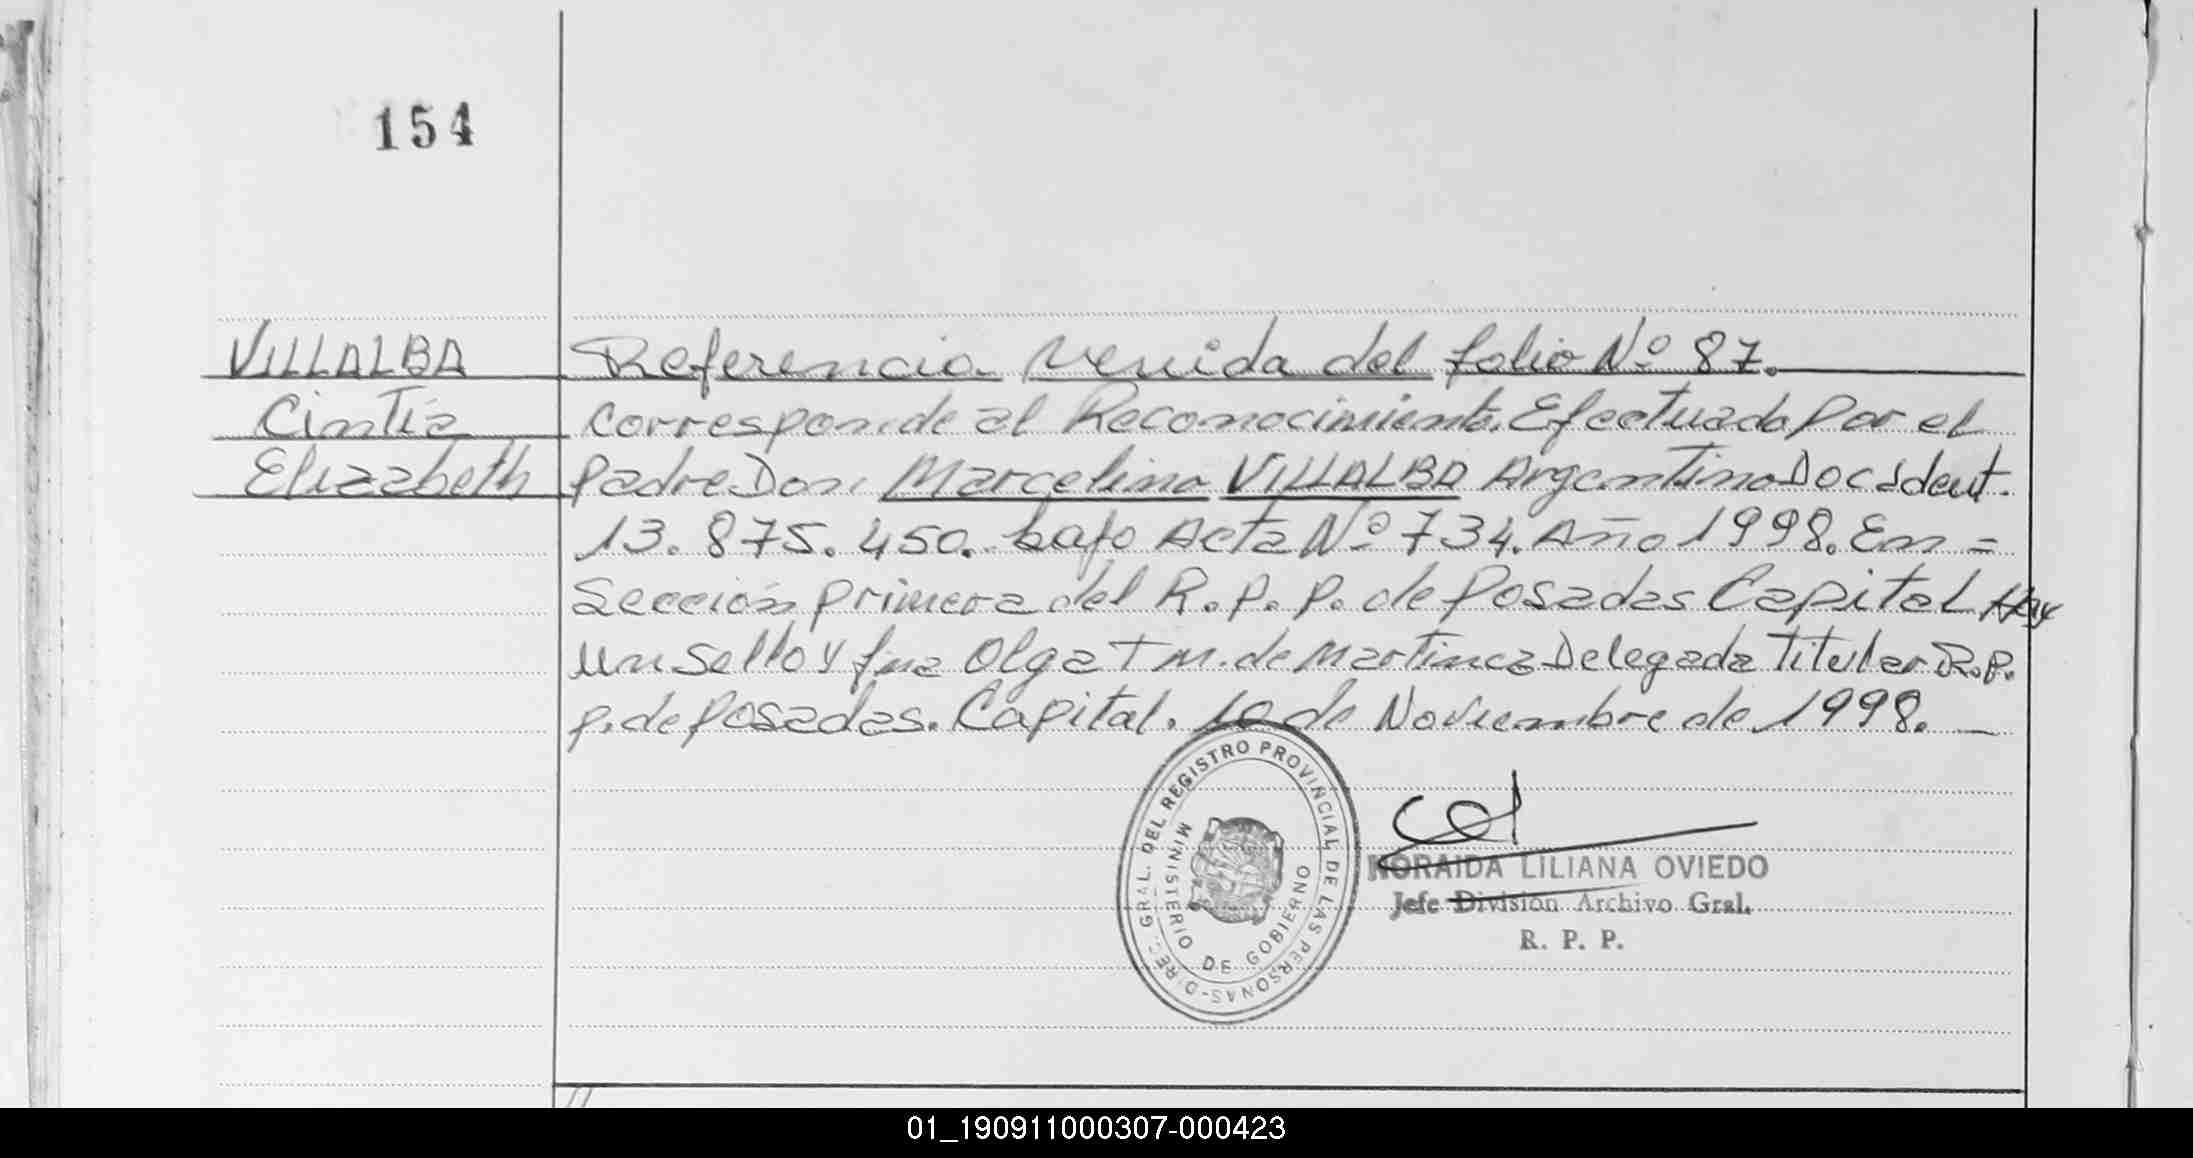 154
VILLALBA
Cintia
Elizabeth
Referencia venida del folio Nº 87.
corresponde al Reconocimiento. Efectuado por el
padre Don. Marcelino VILLALBA Argentino Doc Ident.
13.875.450. bajo Acta Nº 734. Año 1998. En =
Sección primera del R.P.P. de Posadas Capital Hay
un sello y fma Olga T M. de Martinez Delegada Titular R.P.
P. de Posadas. Capital. 10 de Noviembre de 1998.
DIREC. GRAL. DEL REGISTRO PROVINCIAL DE LAS PERSONAS-
MINISTERIO DE GOBIERNO
NORAIDA LILIANA OVIEDO
Jefe División Archivo Gral.
R. P. P.
01_190911000307-000423